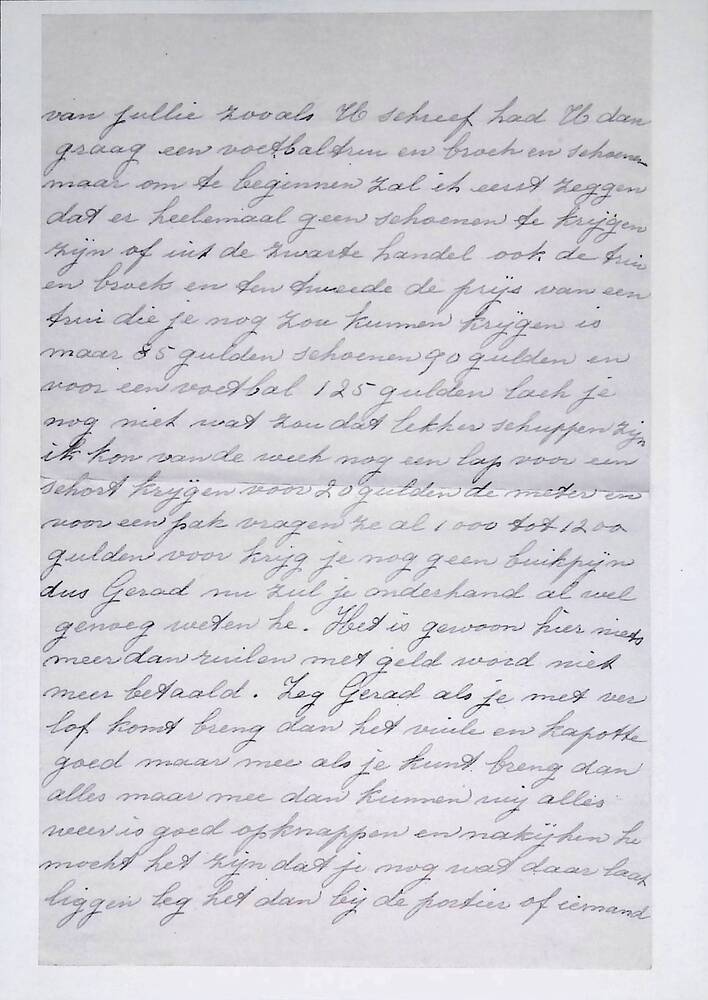 van jullie zooals U schreef had U dan
graag een voetbaltrui en broek en schoenen
maar om te beginnen zal ik eerst zeggen
dat er heelemaal geen schoenen te krijgen
zijn of uit de zwarte handel ook de trui
en broek en ten tweede de prijs van een
trui die je nog zou kunnen krijgen is
maar 85 gulden schoenen 90 gulden en
voor een voetbal 125 gulden lach je
nog niet wat zou dat lekker schuppen zijn
ik kon van de week nog een lap voor een
schort krijgen voor 20 gulden de meter en
voor een pak vragen ze al 1000 tot 1200
gulden voor krijg je nog geen buikpijn
dus Gerad nu zul je onderhand al wel
genoeg weten he. Het is gewoon hier niets
meer dan ruilen met geld word niet
meer betaald. Zeg Gerad als je met ver
lof komt breng dan het vuile en kapotte
goed maar mee als je kunt breng dan
alles maar mee dan kunnen wij alles
weer is goed opknappen en nakijken he
mocht het zijn dat je nog wat daar laat
liggen leg het dan bij de portier of iemand